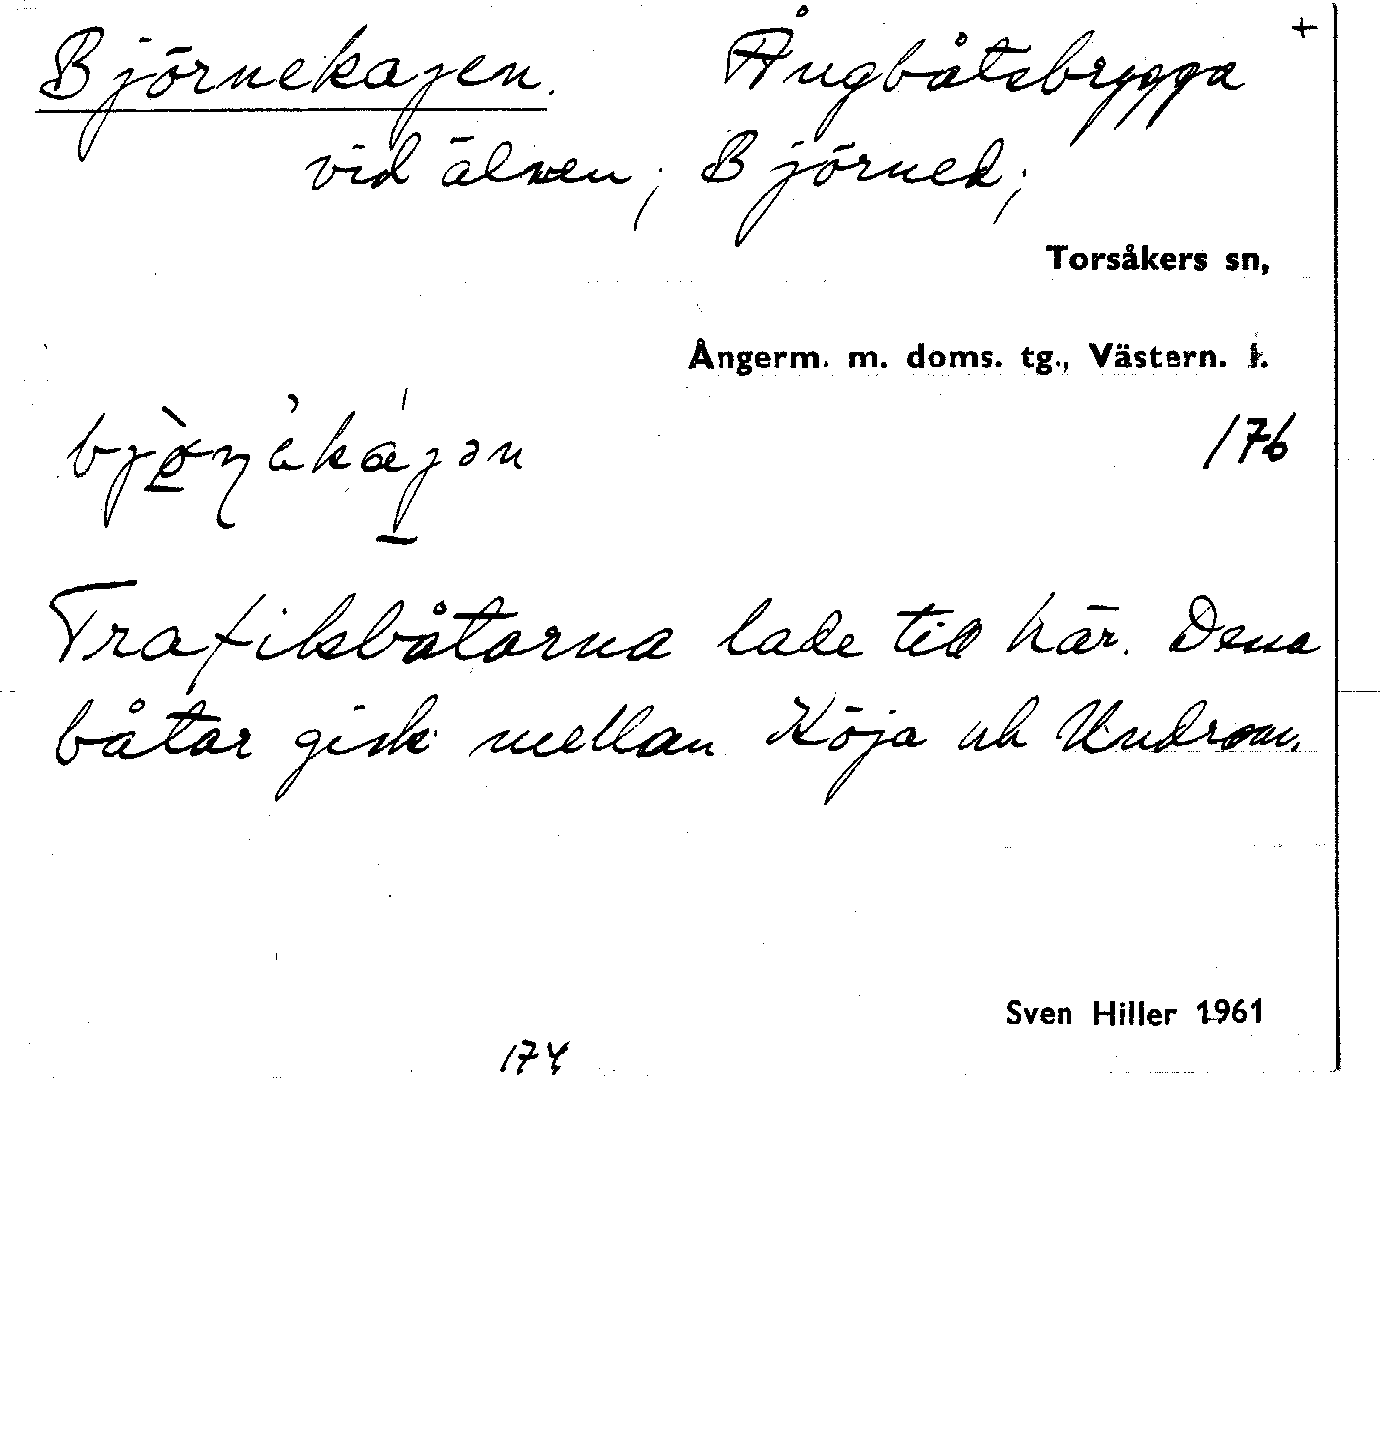 Björnekajen. Ångbåtsbrygga +
vid älven; Björned;
Torsåkers sn,
Ångerm. m. doms. tg., Västern. l.
176
Trafikbåtarna lade till här. Dessa
båtar gick mellan Köja och Undrom.
Sven Hiller 1961
174